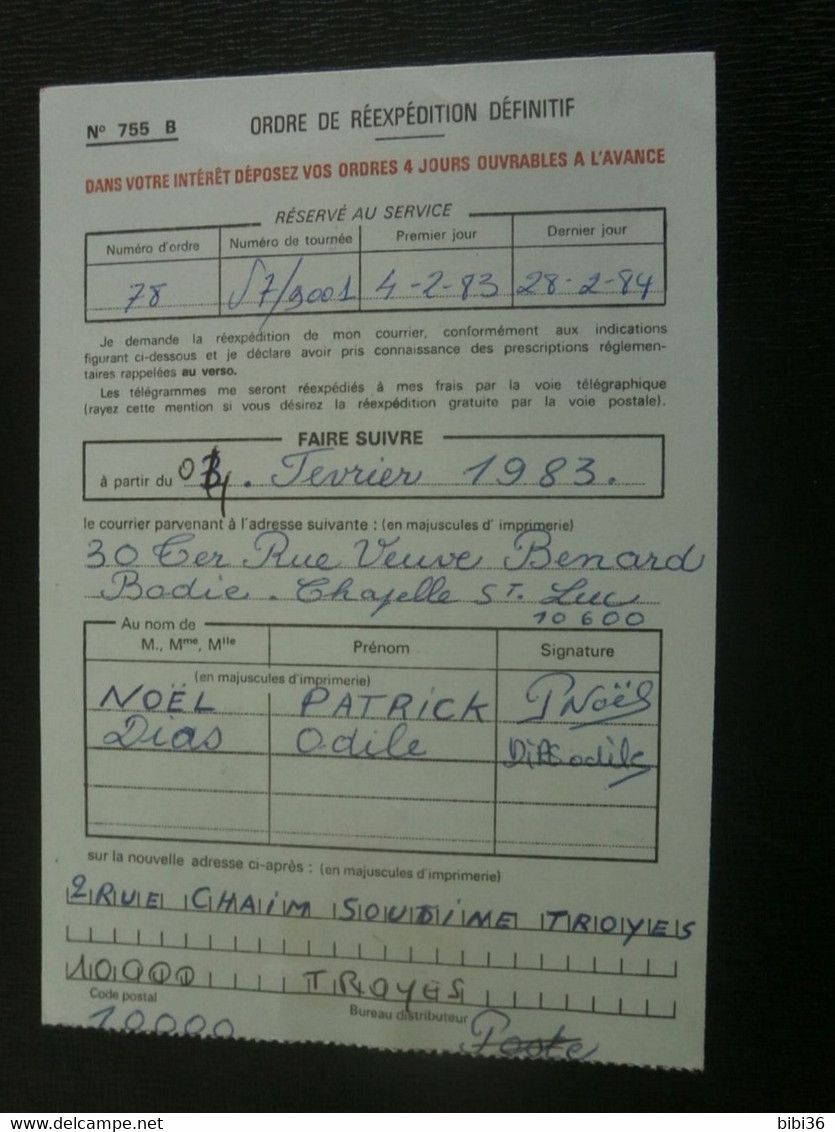 N° 755 B
ORDRE DE RÉEXPÉDITION DÉFINITIF
DANS VOTRE INTÉRÊT DÉPOSEZ VOS ORDRES 4 JOURS OUVRABLES A L'AVANCE
RÉSERVÉ AU SERVICE
Numéro d'ordre Numéro de tournée Premier jour Dernier jour
78 57/9001 4-2-83 28-2-84
Je demande la réexpédition de mon courrier, conformément aux indications
figurant ci-dessous et je déclare avoir pris connaissance des prescriptions réglemen-
taires rappelées au verso.
Les télégrammes me seront réexpédiés à mes frais par la voie télégraphique
(rayez cette mention si vous désirez la réexpédition gratuite par la voie postale).
FAIRE SUIVRE
à partir du 04. Fevrier 1983.
le courrier parvenant à l'adresse suivante : (en majuscules d' imprimerie)
30 Ter Rue Veuve Benard
Bodie. Chapelle St. Luc
10 600
Au nom de
M., Mme, Mlle Prénom Signature
(en majuscules d'imprimerie)
NOËL PATRICK PNoël
Dias Odile DIAS odile
sur la nouvelle adresse ci-après : (en majuscules d'imprimerie)
2 RUE CHAIM SOUTINE TROYES
10000 TROYES
Code postal Bureau distributeur
10000 Poste
delcampe.net
bibi36